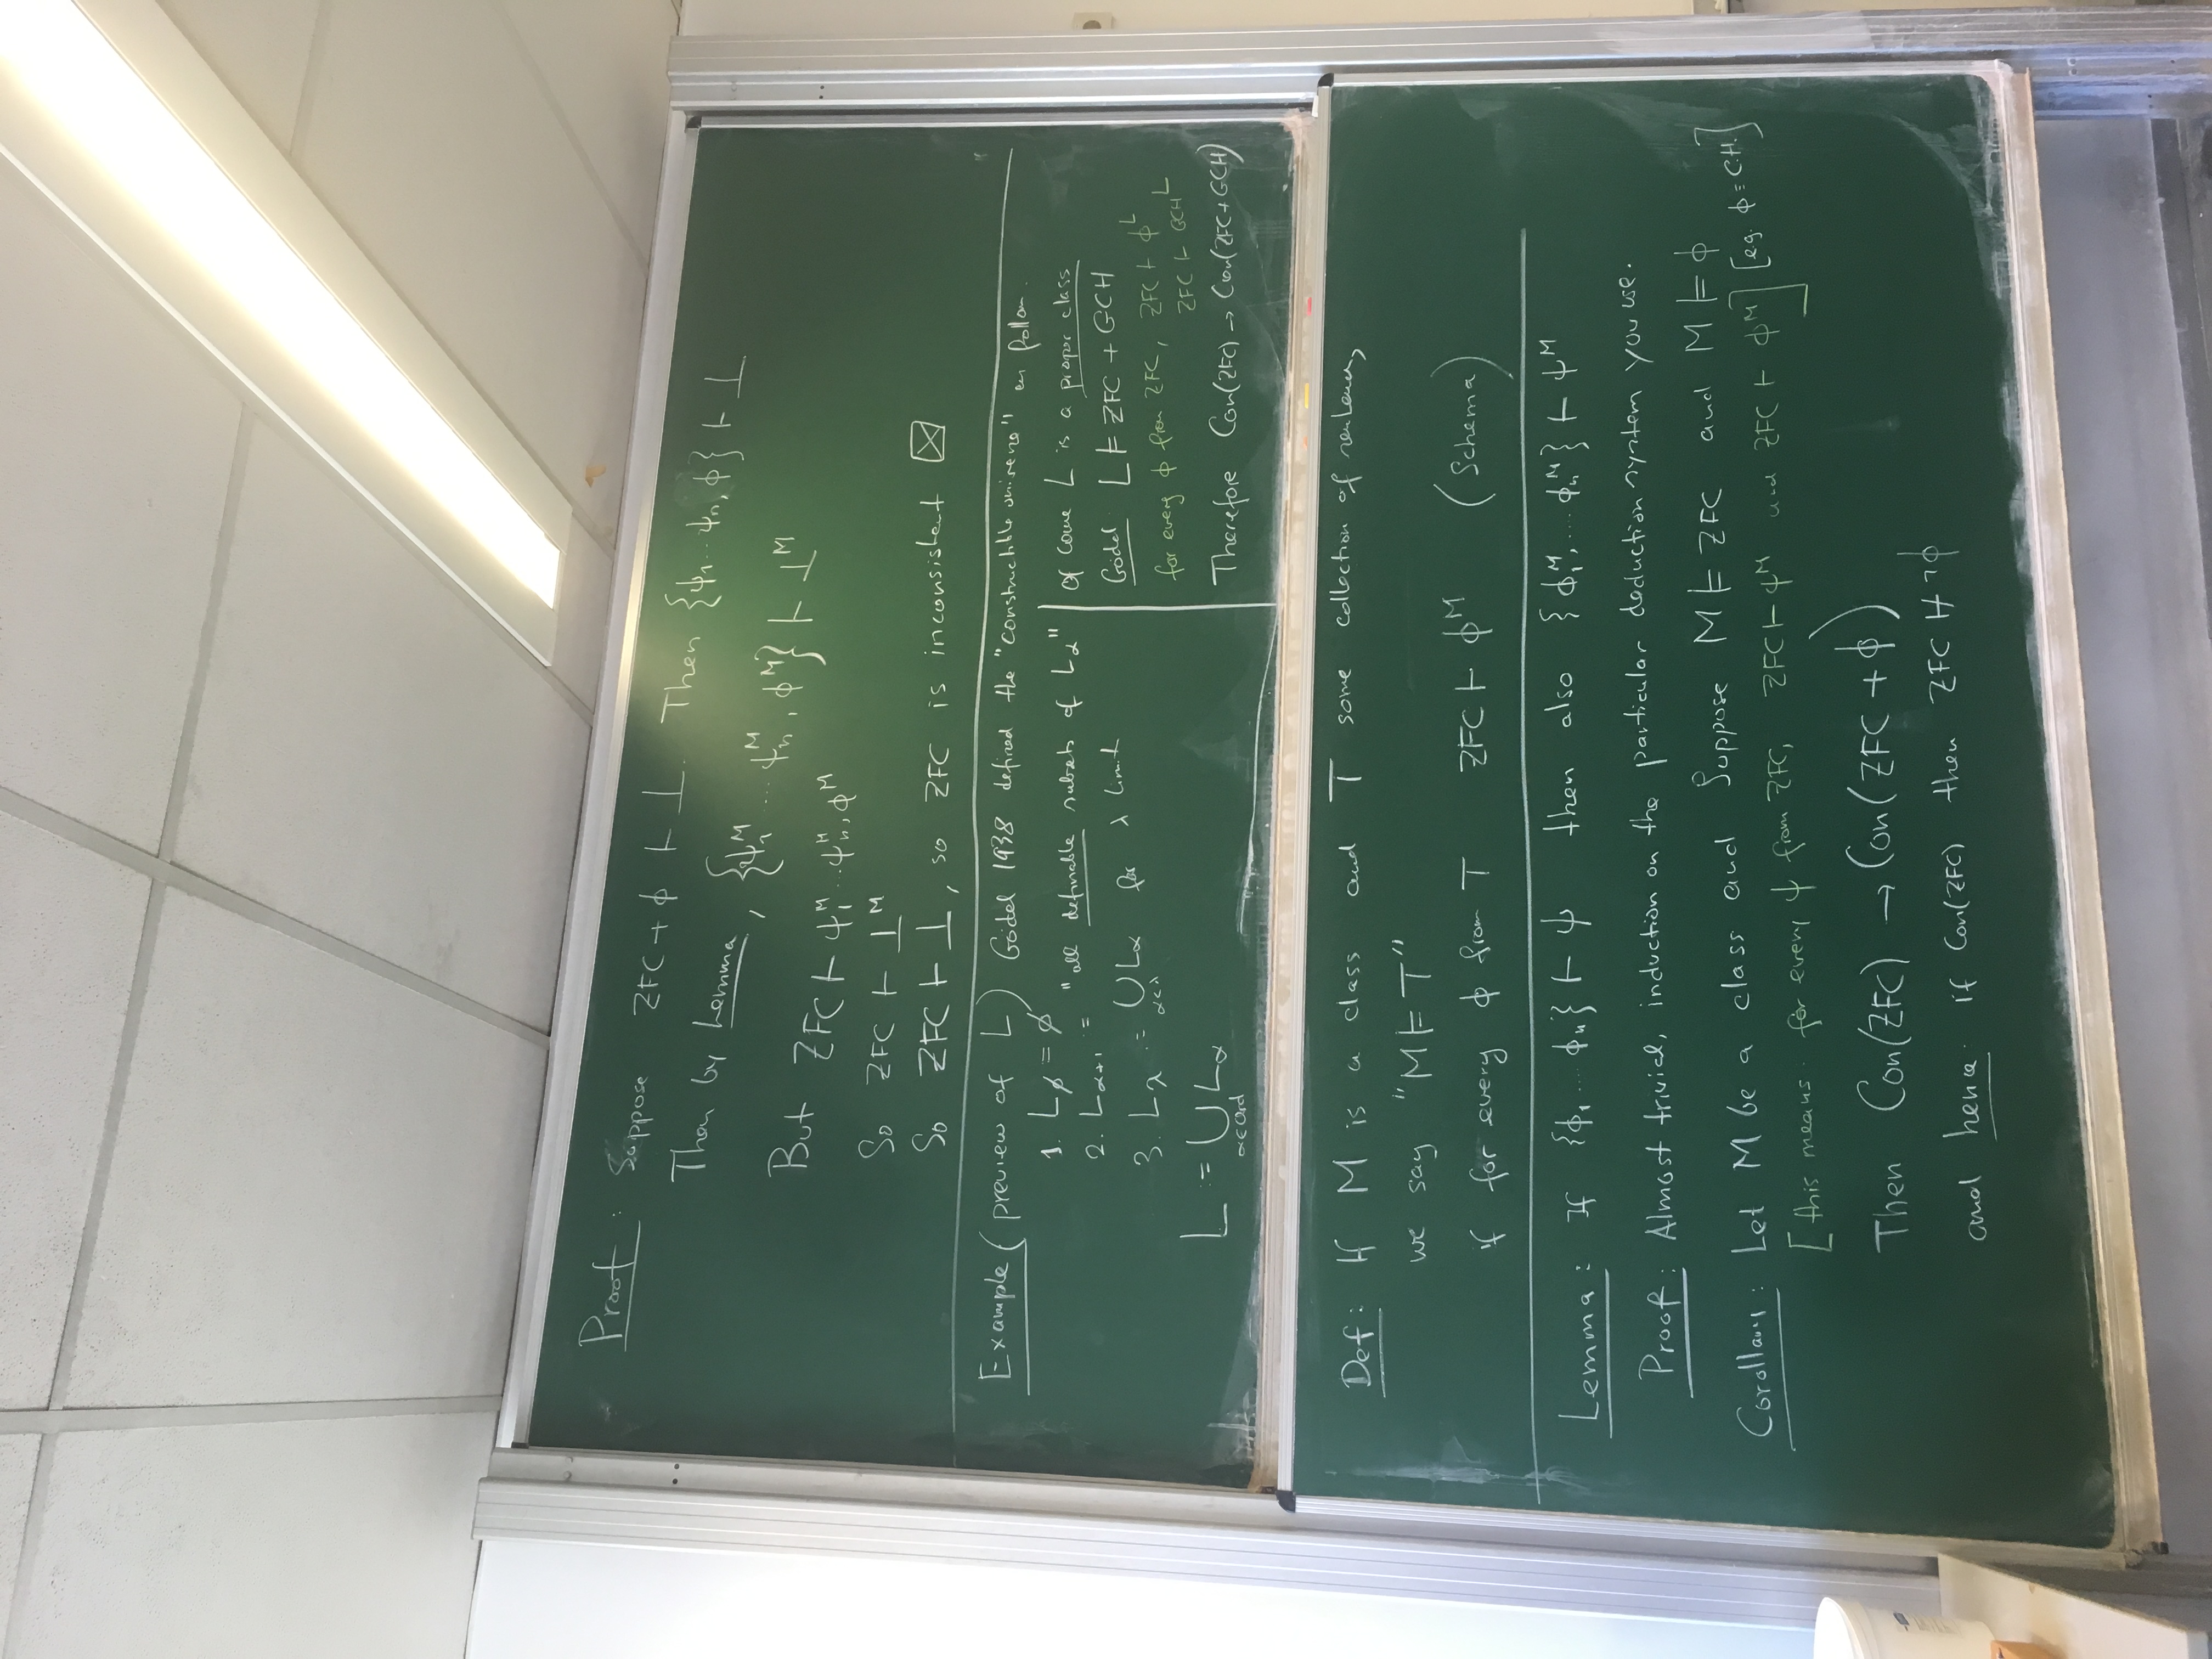 Proof: Suppose ZFC + ϕ ⊢ ⊥. Then {ψ₁...ψₙ, ϕ} ⊢ ⊥
Then by Lemma, {ψ₁ᴹ ..... ψₙᴹ, ϕᴹ} ⊢ ⊥ᴹ
But ZFC ⊢ ψ₁ᴹ...ψₙᴹ, ϕᴹ
So ZFC ⊢ ⊥ᴹ
So ZFC ⊢ ⊥, so ZFC is inconsistent ☒
Example (preview of L) Gödel 1938 defined the "constructible universe" as follows.
1. L∅ = ∅
2. L_{α+1} := "all definable subsets of L_α"
3. L_λ := ⋃_{α<λ} L_α for λ limit
L := ⋃_{α∈Ord} L_α
Of course L is a proper class
Gödel. L ⊨ ZFC + GCH
for every ϕ from ZFC, ZFC ⊢ ϕᴸ
ZFC ⊢ GCHᴸ
Therefore Con(ZFC) → Con(ZFC + GCH)
Def: If M is a class and T some collection of sentences,
we say "M ⊨ T"
if for every ϕ from T ZFC ⊢ ϕᴹ (Schema)
Lemma: If {ϕ₁ .... ϕₙ} ⊢ ψ then also {ϕ₁ᴹ, .... ϕₙᴹ} ⊢ ψᴹ
Proof: Almost trivial, induction on the particular deduction system you use.
Corollary: Let M be a class and Suppose M ⊨ ZFC and M ⊨ ϕ
[this means. for every ψ from ZFC, ZFC ⊢ ψᴹ and ZFC ⊢ ϕᴹ] [e.g. ϕ ≡ C.H.]
Then Con(ZFC) → Con(ZFC + ϕ)
and hence. if Con(ZFC) then ZFC ⊬ ¬ϕ